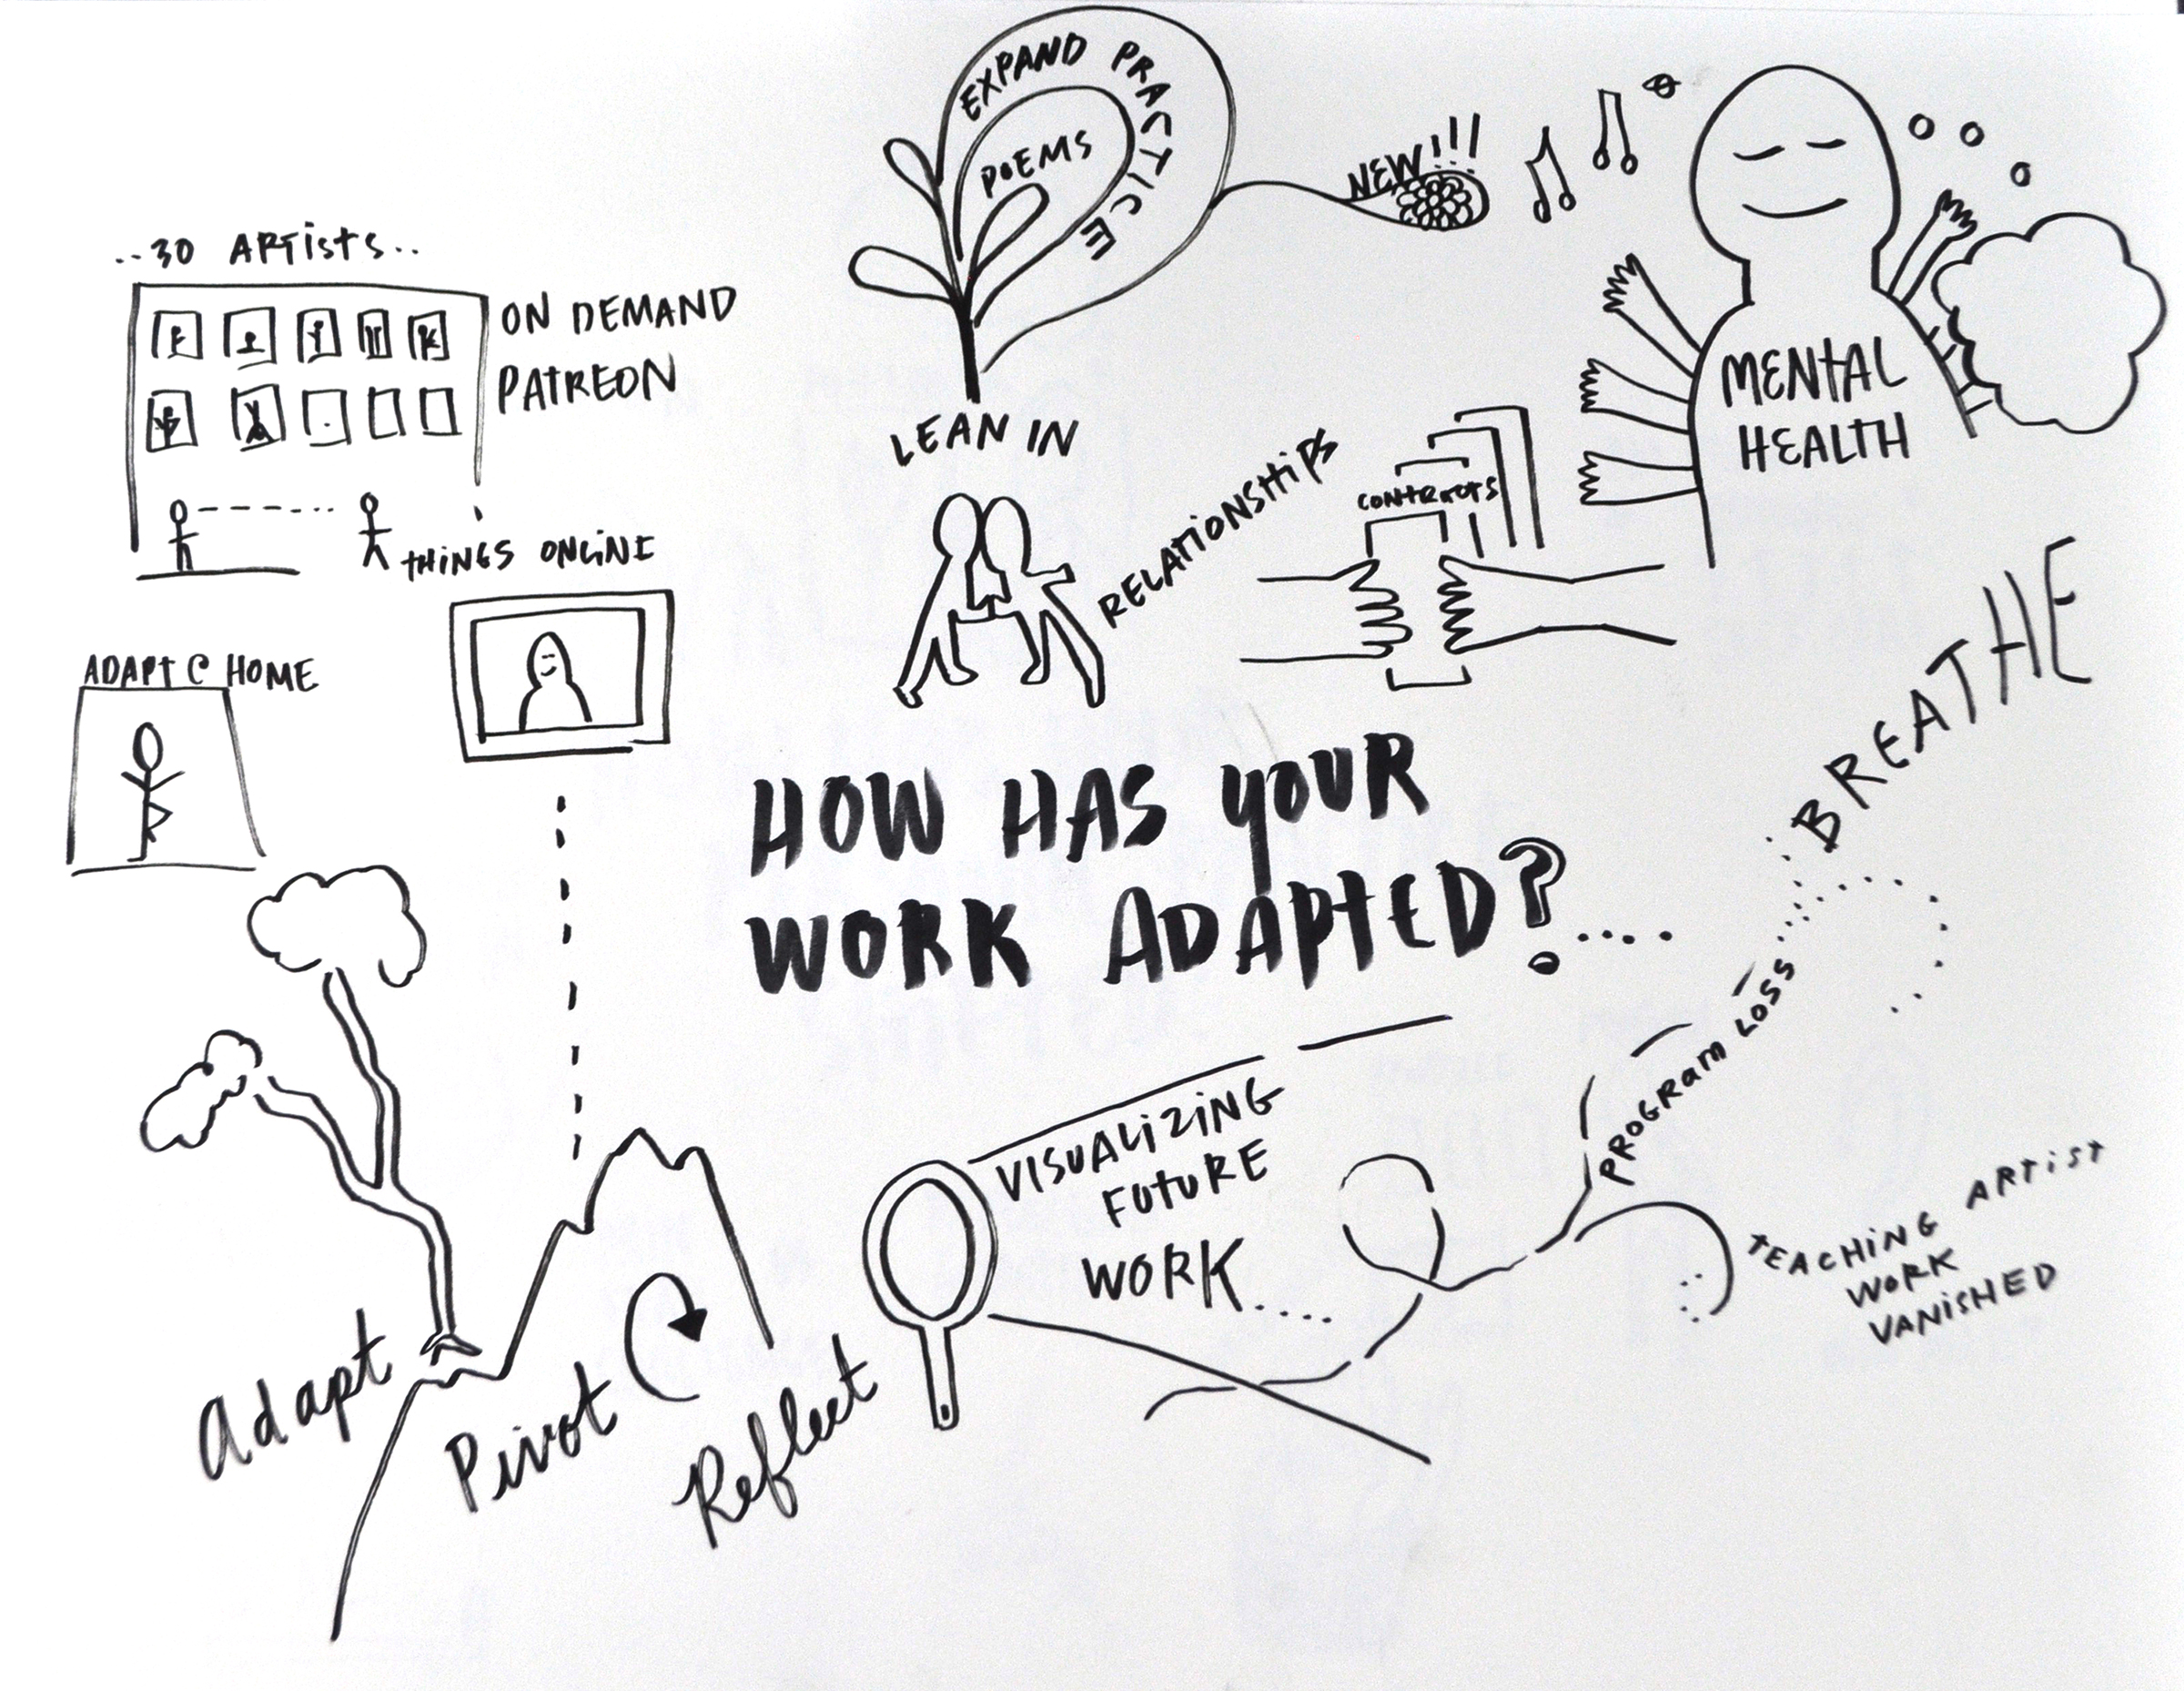 ..30 ARTISTS..
ON DEMAND
PATREON
THINGS ONLINE
ADAPT @ HOME
EXPAND PRACTICE
POEMS
LEAN IN
NEW!!!
MENTAL
HEALTH
RELATIONSHIPS
CONTRACTS
BREATHE
HOW HAS YOUR
WORK ADAPTED?....
PROGRAM LOSS
TEACHING ARTIST
WORK
VANISHED
VISUALIZING
FUTURE
WORK....
Adapt
Pivot
Reflect